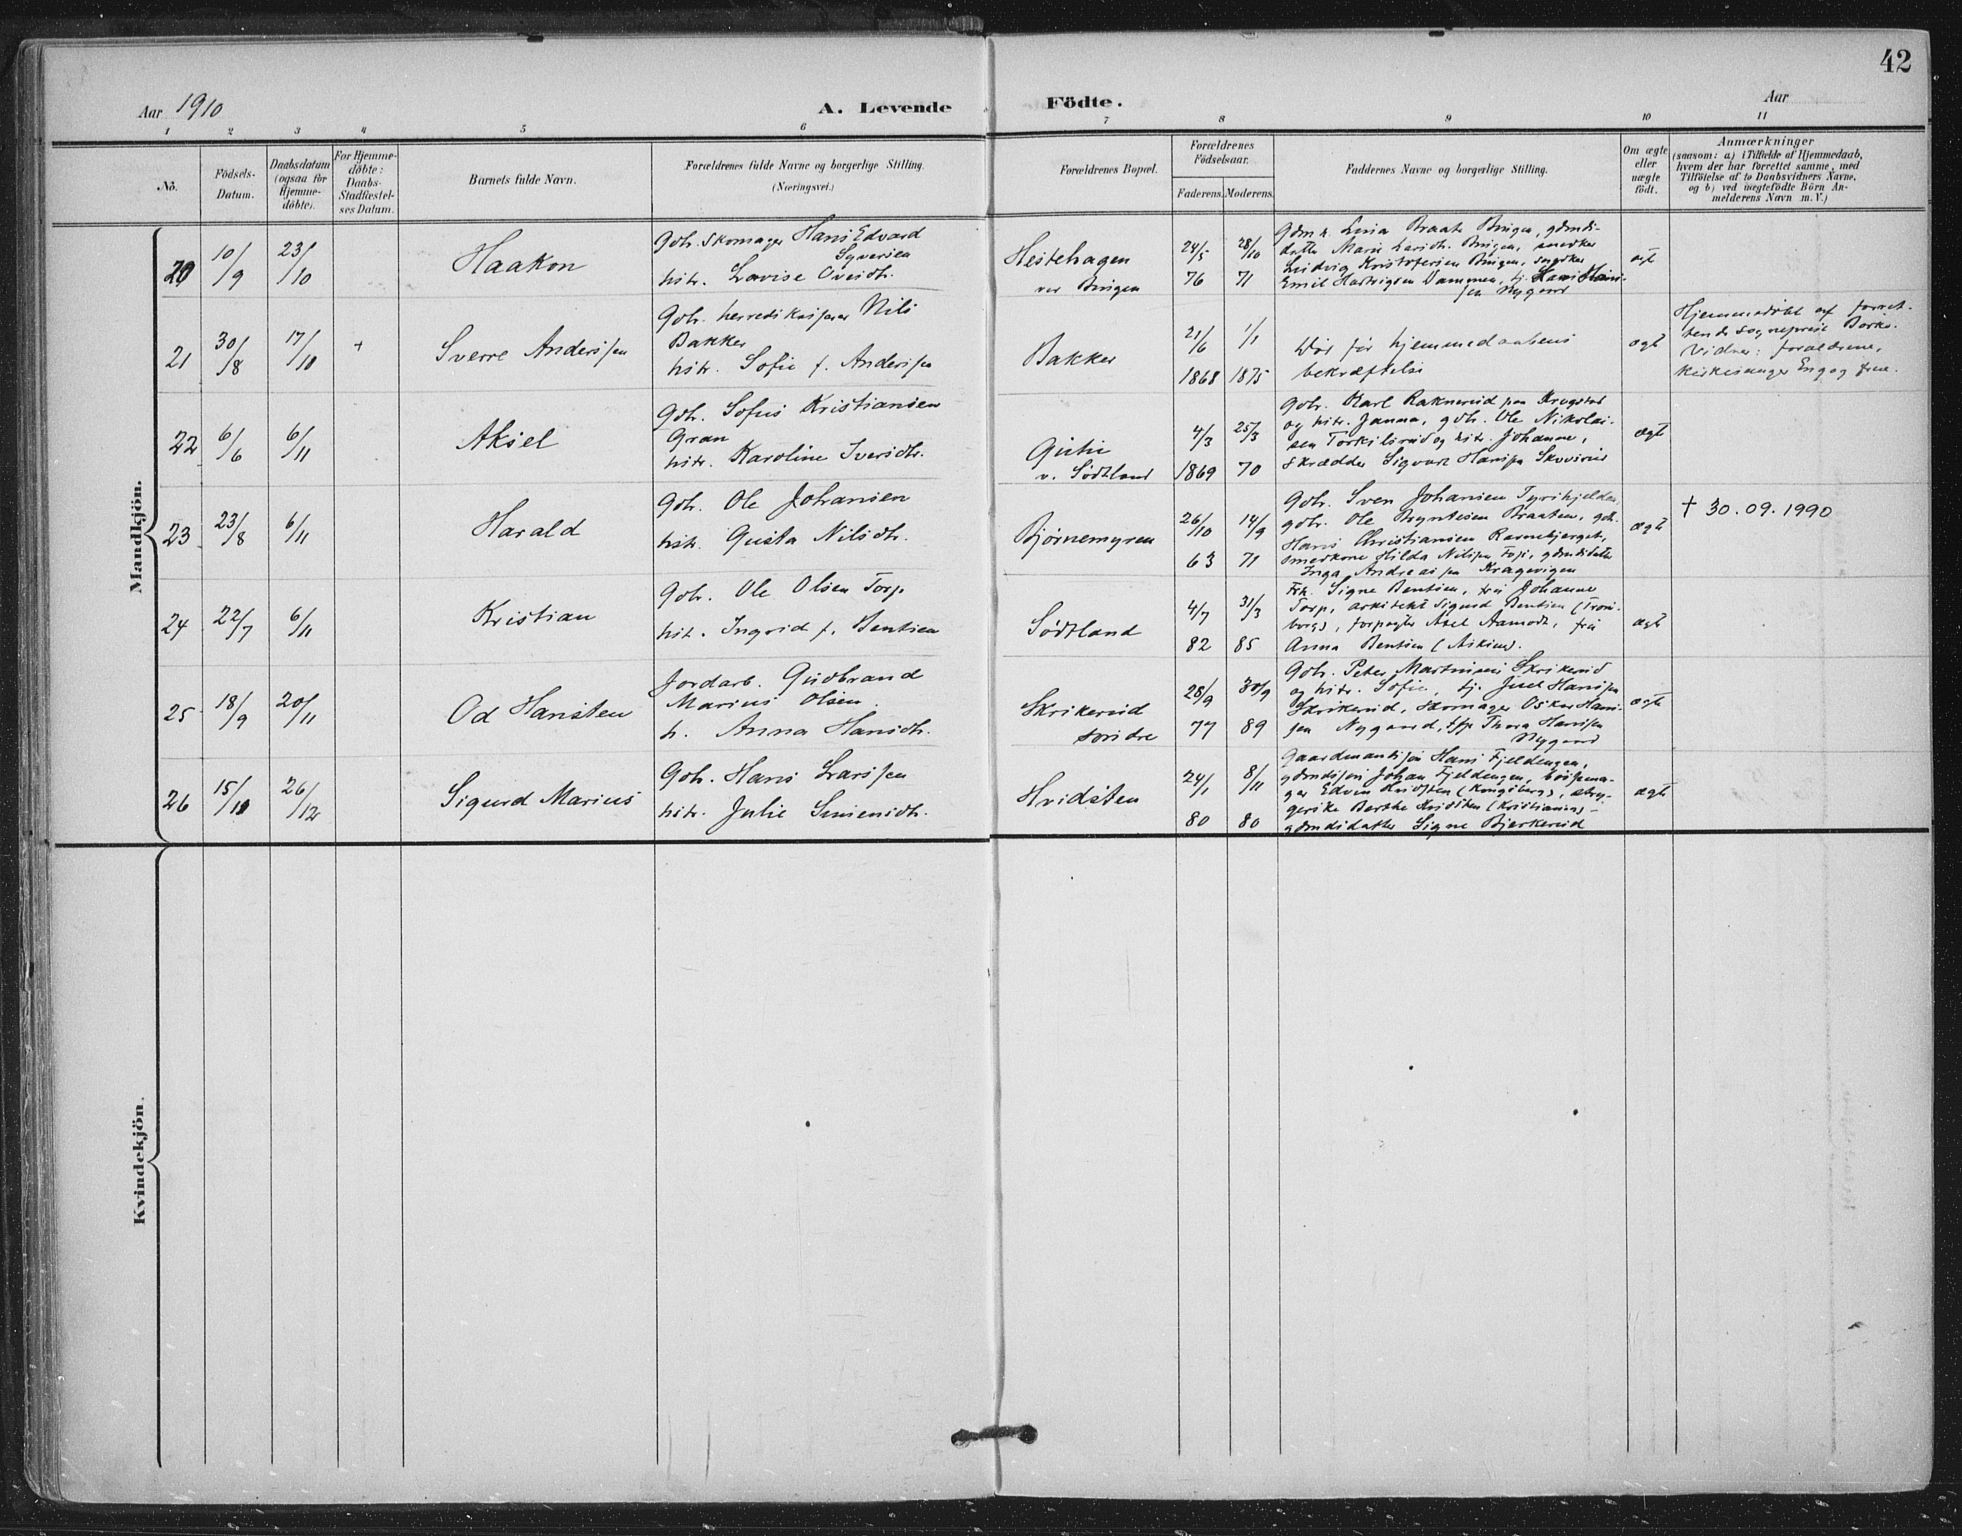 42
Aar 1910
A. Levende
Födte.
Aar
1 2 3 4 5 6 7 8 9 10 11
No.
Födsels-
Datum.
Daabsdatum
(ogsaa för
Hjemme-
döbte).
For Hjemme-
döbte:
Daabs-
Stadfæstel-
ses Datum.
Barnets fulde Navn.
Forældrenes fulde Navne og borgerlige Stilling.
(Næringsvei.)
Forældrenes Bopæl.
Forældrenes
Födselsaar.
Faderens. Moderens.
Faddernes Navne og borgerlige Stilling.
Om ægte
eller
uægte
födt.
Anmærkninger
(saasom: a) i Tilfælde af Hjemmedaab,
hvem der har forrettet samme, med
Tilföielse af to Daabsvidners Navne,
og b) ved uægtefödte Börn An-
melderens Navn m. V.)
Mandkjön.
20
10/9
23/10
Haakon
Gbr. skomager Hans Edvard
Syversen
hstr. Lovise
Hestehagen
ver Bingen
24/5 28/10
76 71
Braate Bingen,
Marie Bingen, snedker
Ludvig Kristofersen Bingen, snedker
Emil Vammen,
Nygaard
ægt
21
30/8
17/10
+
Sverre Anderssen
Gbr. herredskasserer Nils
Bakker
hstr. Sofie f. Anderssen
Bakker
21/6 1/1
1868 1875
Død før hjemmedaabens
bekræftelse
ægt
Hjemmedøbt af forret-
tende sogneprest
Vidner: forældrene,
kirkesanger Eng og frue.
22
6/6
6/11
Aksel
Gbr. Sofus Kristiansen
Gran
hstr. Karoline Iversdtr.
v. Södtland
4/3 25/3
1869 70
Gbr. Karl Raknerud paa Krogstad
og hstr. Janna, gbr. Ole Nikolai-
sen Torkilsrud og hstr. Johanne,
skrædder Sigvart Hanssen
ægt
23
23/8
6/11
Harald
Gbr. Ole Johansen
hstr. Gusta Nilsdtr.
Bjørnemyren
26/10 14/9
63 71
Gbr. Sven Johansen
gbr. Ole Braaten, gbr.
Hans Christiansen Ravnebjerget,
Hilda Nilssen
Inga Andreassen Kragevigen
ægt
† 30.09.1990
24
22/7
6/11
Kristian
Gbr. Ole Olsen Torp
hst. Ingrid f. Bentsen
Södtland
4/7 31/3
82 85
Frk. Signe Bentsen, fru Johanne
Torp, arkitekt Sigurd Bentsen (Trom-
borg), forpagter Axel Aamodt, fru
Anna Bentsen (Askim).
ægt
25
18/9
20/11
Od Hansten
Jordarb. Gudbrand
Marius Olsen
h. Anna Hansdtr.
Skrikerud
søndre
28/9 30/9
77 89
Gbr. Peter Martinsen Skrikerud
og hstr. Sofie, tj. Juel Hanssen
Skrikerud, skomager Oskar Hans-
sen Nygaard, Thora Hanssen
Nygaard
ægte
26
15/10
26/12
Sigurd Marius
Gbr. Hans Larssen
hstr. Julie Simensdtr.
Hvidsten
24/1 8/11
80 80
Gaardmandssøn Hans Fjeldengen,
gdmdssøn Johan Fjeldengen,
Edvin Hvidsten (Kongsberg),
Berthe Hvidsten (Kristiania) -
gdmdsdatter Signe Bjerkerud
ægte
Kvindekjön.